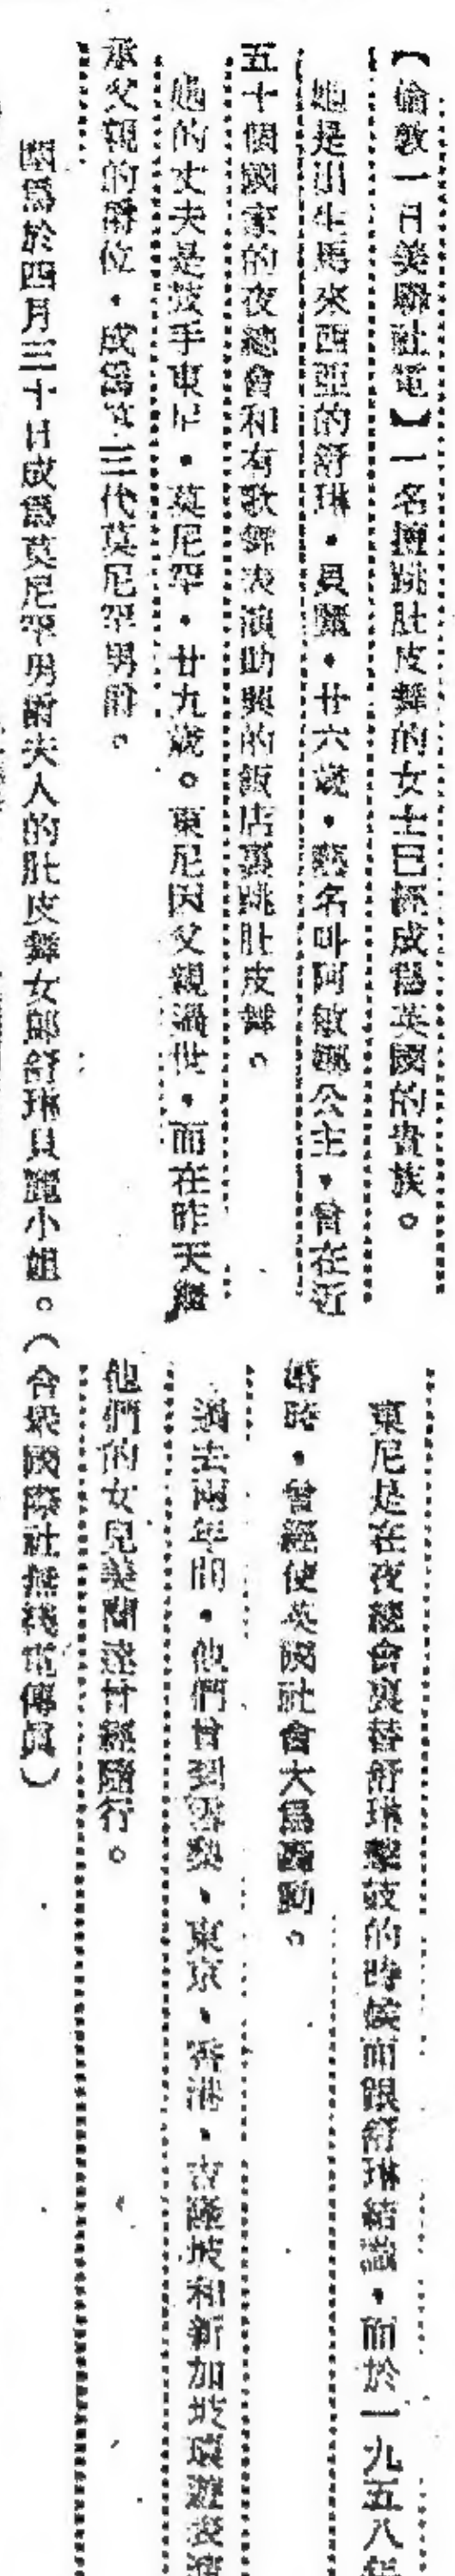 【倫敦一日美聯社電】一名擅跳肚皮舞的女士已經成為英國的貴族。
她是出生馬來西亞的舒琳・貝麗・廿六歲・藝名叫阿敏娜公主・曾在近
五十個國家的夜總會和有歌舞表演助興的飯店裏跳肚皮舞。
她的丈夫是鼓手東尼・莫尼罕・廿九歲。東尼因父親過世・而在昨天繼
承父親的爵位・成為第三代莫尼罕男爵。
東尼是在夜總會裏替舒琳擊鼓的時候而跟舒琳結識・而於一九五八年
婚時・曾經使英國社會大為轟動。
過去兩年間・他們曾到雪梨、東京・香港・吉隆坡和新加坡環遊表演
他們的女兒美蘭達曾經隨行。
圖為於四月三十日成為莫尼罕男爵夫人的肚皮舞女郎舒琳貝麗小姐。(合衆國際社無綫電傳眞)